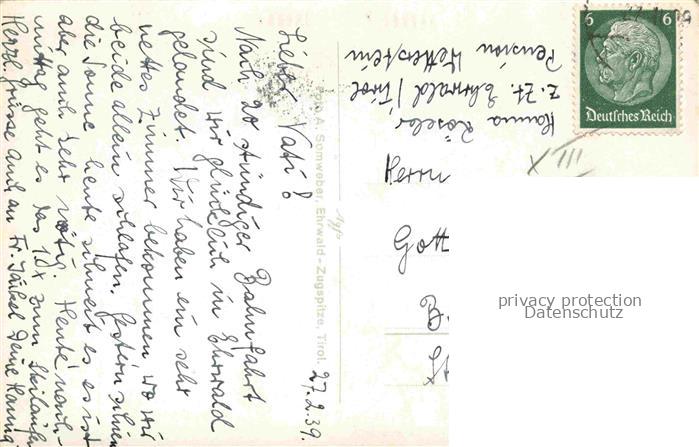 27.2.39.
Lieber Vati!
Nach 20 stündiger Bahnfahrt
sind wir glücklich in Ehrwald
gelandet. Wir haben ein sehr
nettes Zimmer bekommen wo wir
beide allein schlafen. Gestern schien
die Sonne heute schneit es es ist
aber auch sehr nötig. Heute nach-
mittag geht es das 1x zum Skilaufen
Herzl. Grüsse auch an Fr. Jäikel Deine Hanna.
Foto A. Somweber, Ehrwald - Zugspitze, Tirol.
Hanna Röseler
z. Zt. Ehrwald / Tirol
Pension Wetterstein
6 6
Deutsches Reich
XIII
Herrn
Gott
B.
St
privacy protection
Datenschutz